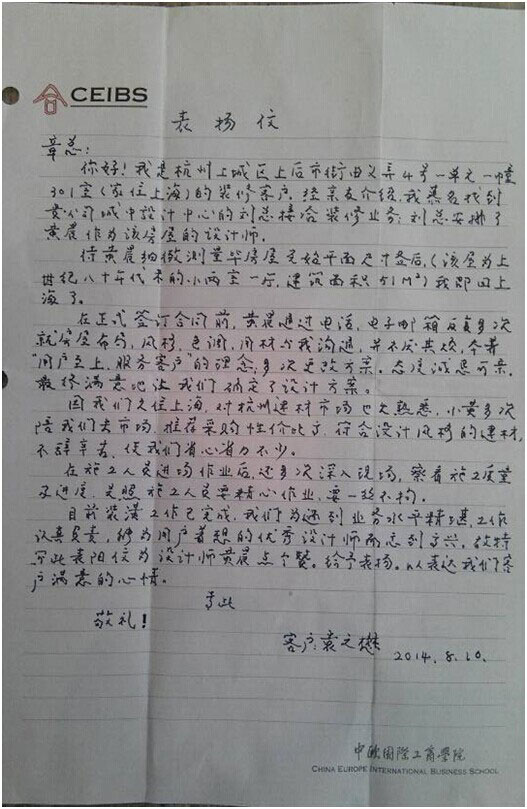 CEIBS
表扬信
章总:
你好!我是杭州上城区上后市街由义弄4号一单元一幢
301室(家住上海)的装修客户,经亲友介绍,我慕名找到
贵公司城中设计中心的刘总接洽装修业务;刘总安排了
黄晨作为该房屋的设计师。
待黄晨细微测量毕房屋见始平面尺寸签后,(该屋为上
世纪八十年代末的小两室一厅,建筑面积51M²)我即回上
海了。
在正式签订合同前,黄晨通过电话,电子邮箱反复多次
就房屋布局,风格,色调,用材与我沟通,并不厌其烦,本着
"用户至上,服务客户"的理念,多次更改方案。态度诚恳可亲,
最终满意地让我们确定了设计方案。
因我们久住上海,对杭州建材市场也欠熟悉,小黄多次
陪我们去市场,推荐采购性价比高,符合设计风格的建材,
不辞辛苦,使我们省心省力不少。
在施工人员进场作业后,还多次深入现场,察看施工质量
及进度,关照施工人员要精心作业,要一丝不拘。
目前装潢工作已完成,我们为遇到业务水平精湛,工作
认真负责,能为用户着想的优秀设计师而感到高兴,故特
写此表扬信为设计师黄晨点个赞。给予表扬。以表达我们客
户满意的心情。
专此
敬礼!
客户:袁之懋
2014.8.10.
中欧国际工商学院
CHINA EUROPE INTERNATIONAL BUSINESS SCHOOL